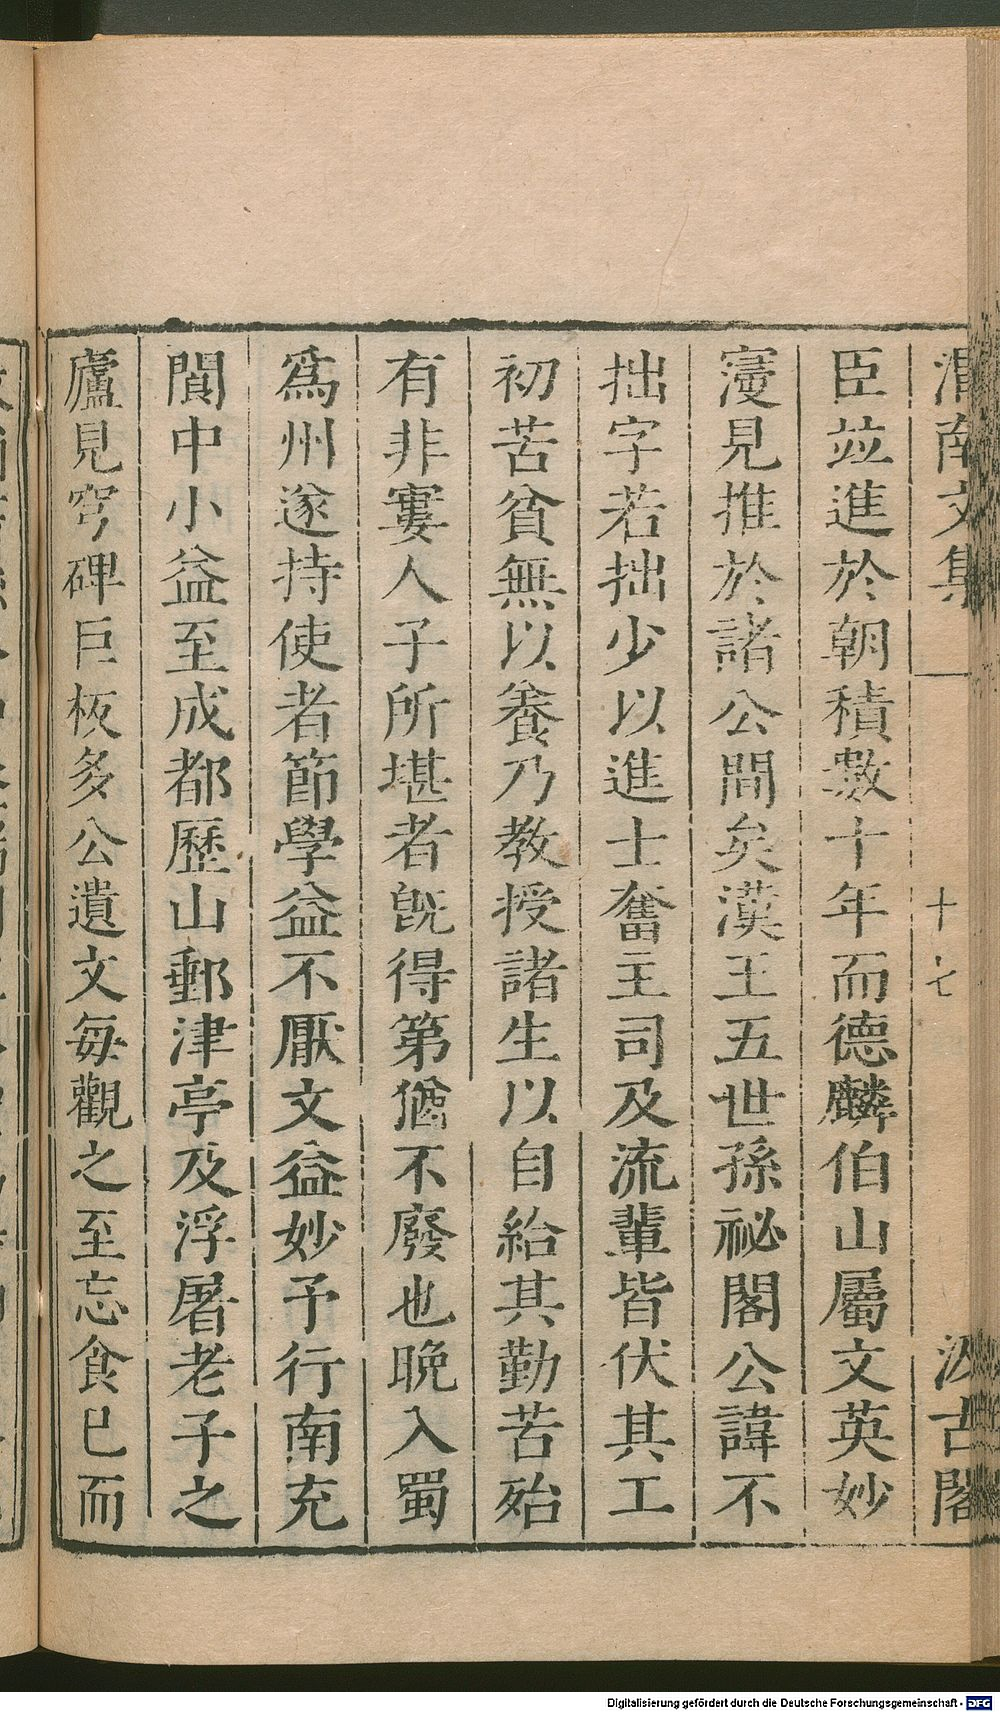 渭南文集
十七
汲古閣
臣竝進於朝積數十年而德麟伯山屬文英妙
寖見推於諸公間矣漢王五世孫祕閣公諱不
拙字若拙少以進士奮主司及流輩皆伏其工
初苦貧無以養乃教授諸生以自給其勤苦殆
有非寠人子所堪者旣得第猶不廢也晚入蜀
爲州遂持使者節學益不厭文益妙予行南充
閬中小益至成都歷山郵津亭及浮屠老子之
廬見穹碑巨板多公遺文每觀之至忘食已而
Digitalisierung gefördert durch die Deutsche Forschungsgemeinschaft - DFG